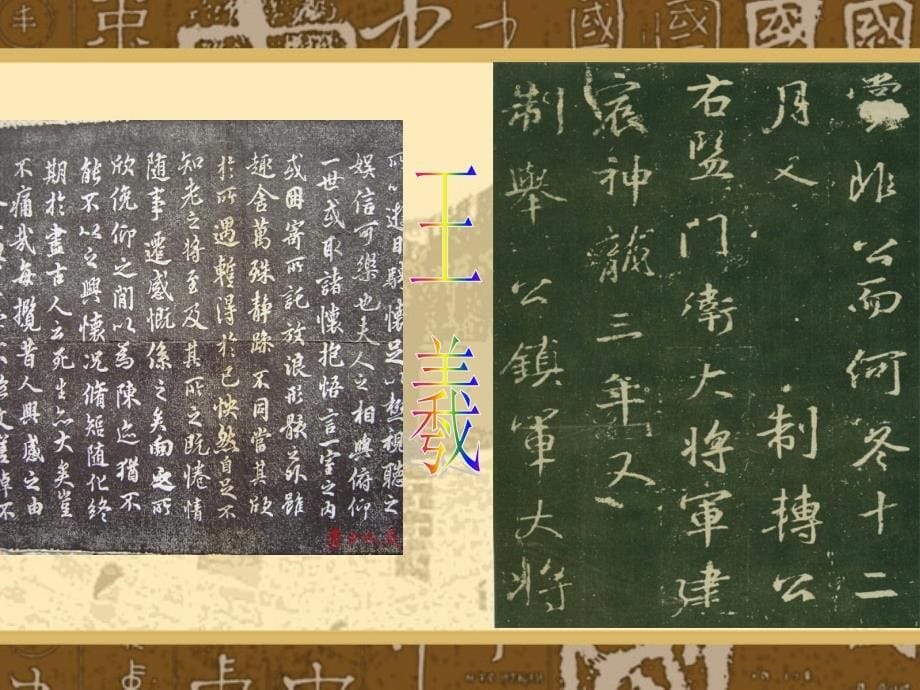 賞非公而何冬十二
月又制轉公
右監門衛大將軍建
宸神龍三年又
制舉公鎮軍大將
王羲
所以遊目騁懷足以極視聽之
娛信可樂也夫人之相與俯仰
一世或取諸懷抱悟言一室之內
或因寄所託放浪形骸之外雖
趣舍萬殊靜躁不同當其欣
於所遇暫得於己怏然自足不
知老之將至及其所之既惓情
隨事遷感慨係之矣向之所
欣俛仰之閒以為陳迹猶不
能不以之興懷況脩短隨化終
期於盡古人云死生亦大矣豈
不痛哉每攬昔人興感之由